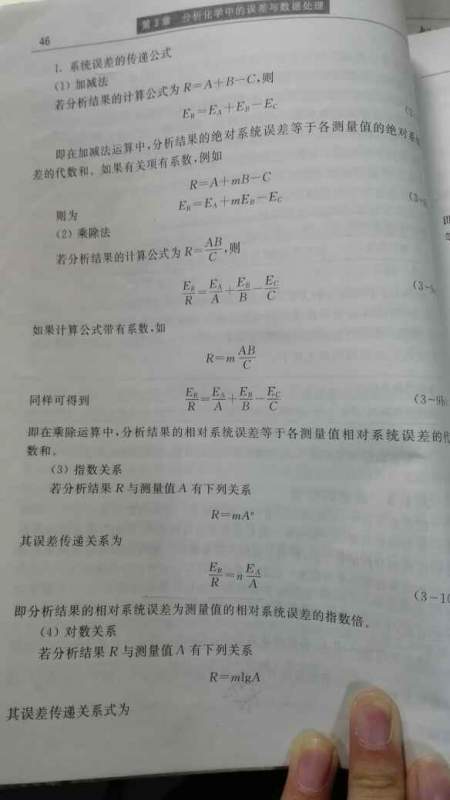 46
第3章 分析化学中的误差与数据处理
1. 系统误差的传递公式
(1) 加减法
若分析结果的计算公式为 R=A+B-C,则
E_R=E_A+E_B-E_C
即在加减法运算中,分析结果的绝对系统误差等于各测量值的绝对系
差的代数和。如果有关项有系数,例如
R=A+mB-C
则为
E_R=E_A+mE_B-E_C
(2) 乘除法
若分析结果的计算公式为 R=AB/C,则
E_R/R=E_A/A+E_B/B-E_C/C
如果计算公式带有系数,如
R=m AB/C
同样可得到
E_R/R=E_A/A+E_B/B-E_C/C (3-9b)
即在乘除运算中,分析结果的相对系统误差等于各测量值相对系统误差的代
数和。
(3) 指数关系
若分析结果 R 与测量值 A 有下列关系
R=mAⁿ
其误差传递关系为
E_R/R=n E_A/A (3-10
即分析结果的相对系统误差为测量值的相对系统误差的指数倍。
(4) 对数关系
若分析结果 R 与测量值 A 有下列关系
R=mlgA
其误差传递关系式为